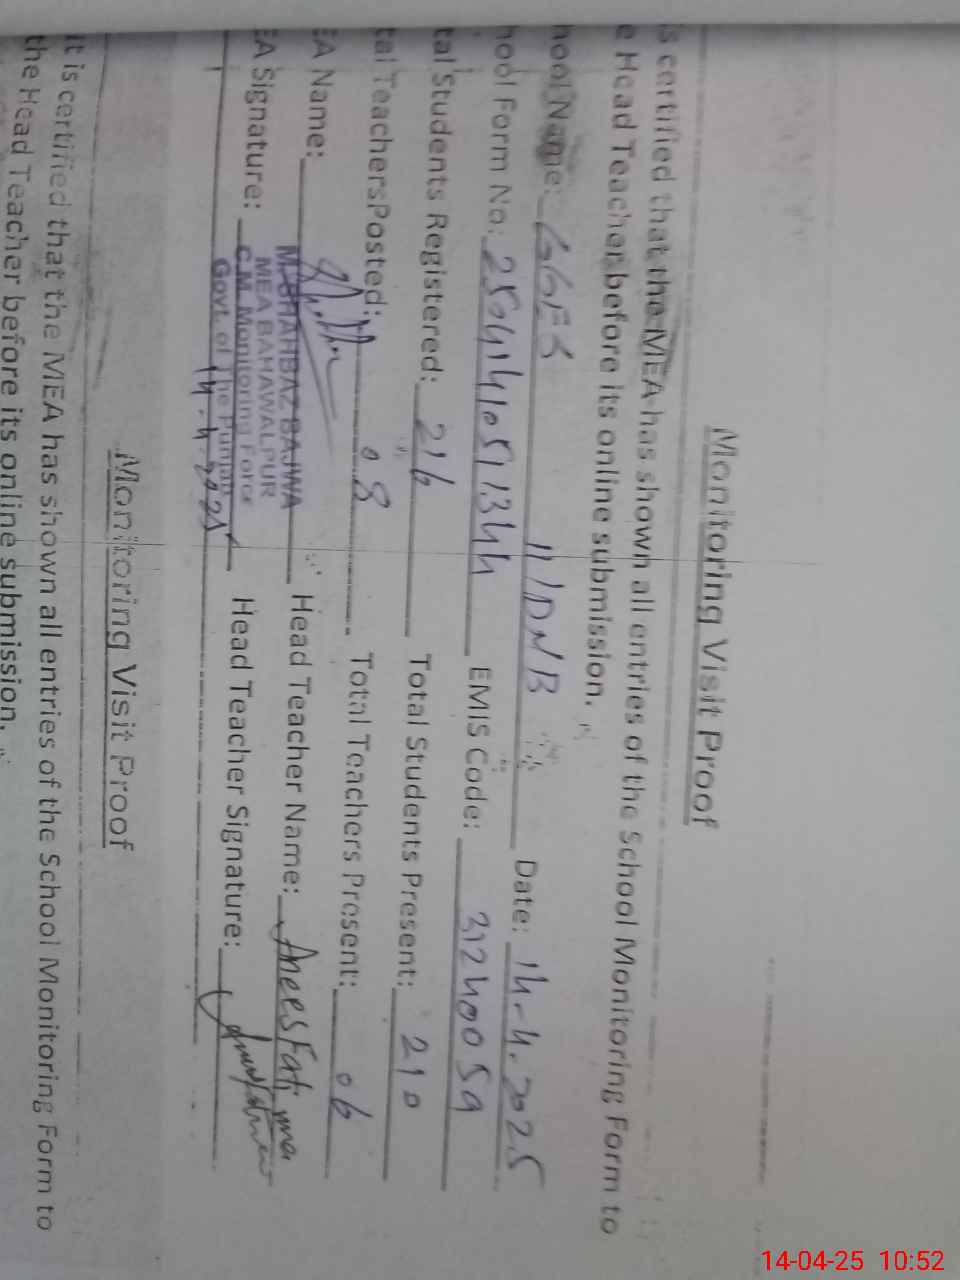 Monitoring Visit Proof
is certified that the MEA has shown all entries of the School Monitoring Form to
e Head Teacher before its online submission.
hool Name: GGES 11/DNB Date: 14-4.2025
hool Form No: 2504141051344 EMIS Code: 31240059
tal Students Registered: 216 Total Students Present: 210
tal TeachersPosted: 08 Total Teachers Present: 06
EA Name: M. SHAHBAZ BAJWA Head Teacher Name: Anees Fatima
MEA BAHAWALPUR
EA Signature: C.M. Monitoring Force Head Teacher Signature:
Govt. of The Punjab
14-4-2025
Monitoring Visit Proof
It is certified that the MEA has shown all entries of the School Monitoring Form to
the Head Teacher before its online submission.
14-04-25 10:52